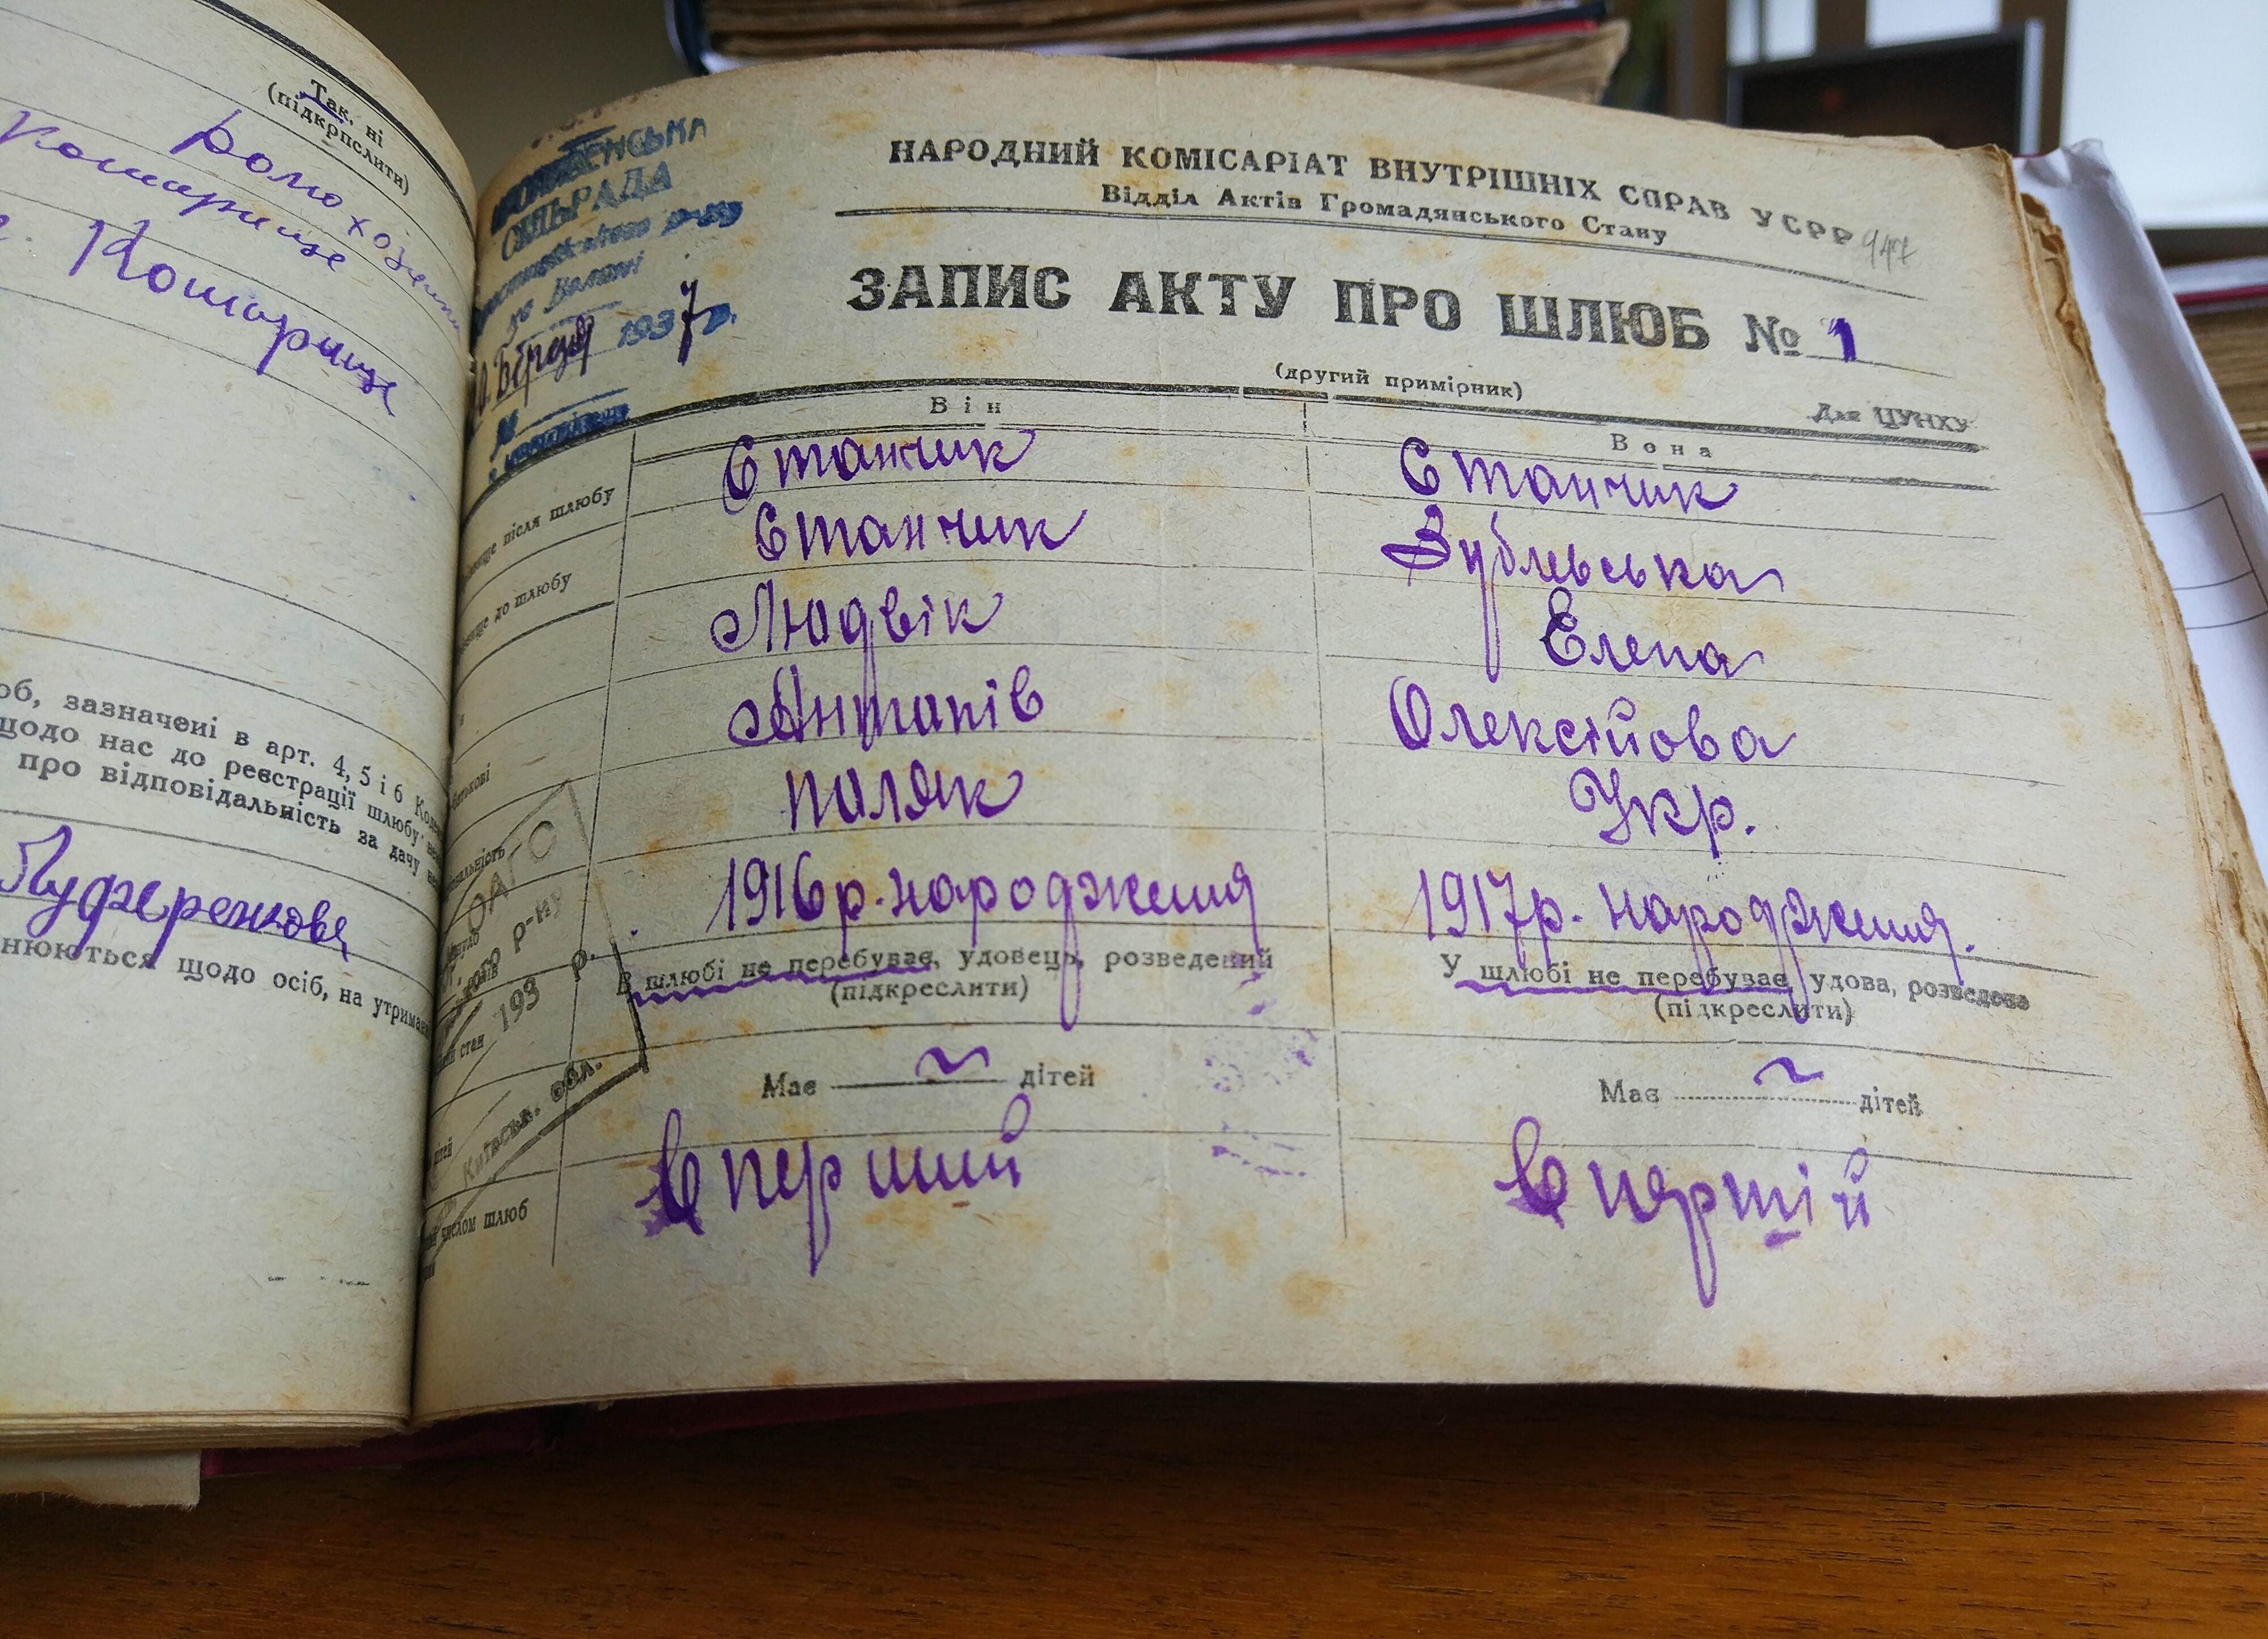 Так, ні
(підкреслити)
Кошарище
с. Кошарище
зазначені в арт. 4, 5 і 6
щодо нас до реєстрації шлюбу
про відповідальність за дачу
нюються щодо осіб, на
СІЛЬРАДА
Березня 1937 р.
НАРОДНИЙ КОМІСАРІАТ ВНУТРІШНІХ СПРАВ УСРР
Відділ Актів Громадянського Стану
947
ЗАПИС АКТУ ПРО ШЛЮБ № 1
(другий примірник)
Для ЦУНХУ
Він Вона
після шлюбу Станчик Станчик
до шлюбу Станчик Зублевська
Людвік Елена
Антапів Олексійова
поляк Укр.
1916 р. народження 1917 р. народження.
В шлюбі не перебуває, удовець, розведений У шлюбі не перебуває, удова, розведена
(підкреслити) (підкреслити)
Має дітей Має дітей
числом шлюб В перший В пярший
ОАГС
р-ну
193 р.
Київськ. обл.